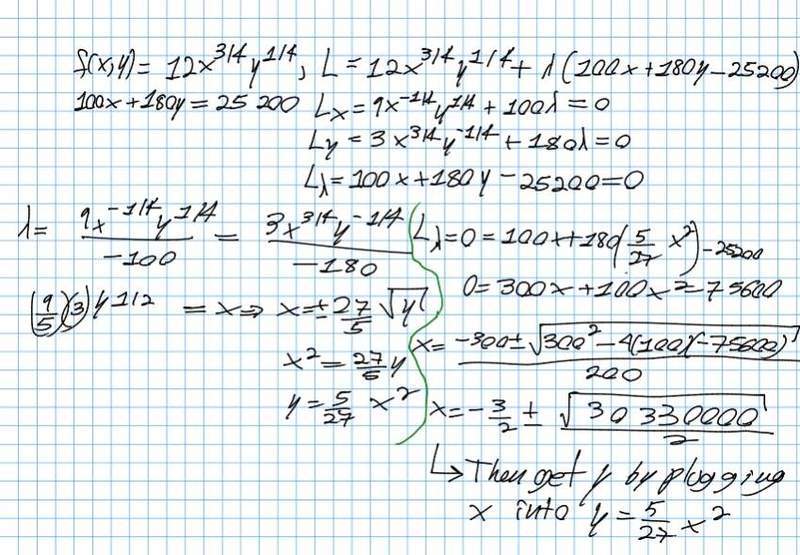 f(x,y) = 12x^{3/4}y^{1/4}, L = 12x^{3/4}y^{1/4} + λ(100x+180y-25200)
100x+180y=25200 Lx = 9x^{-1/4}y^{1/4} + 100λ = 0
Ly = 3x^{3/4}y^{-1/4} + 180λ = 0
Lλ = 100x+180y-25200=0
λ = 9x^{-1/4}y^{1/4} / -100 = 3x^{3/4}y^{-1/4} / -180
(9/5)(3)y^{1/2} = x ⇒ x = ± 27/5 √y
x² = 27/5 y
y = 5/27 x²
Lλ=0 = 100x+180(5/27 x²) -25200
0=300x+100x²=75600
x= -300± √(300²-4(100)(-75600)) / 200
x= -3/2 ± √30330000 / 2
↳ Then get y by plogging
x into y = 5/27 x²